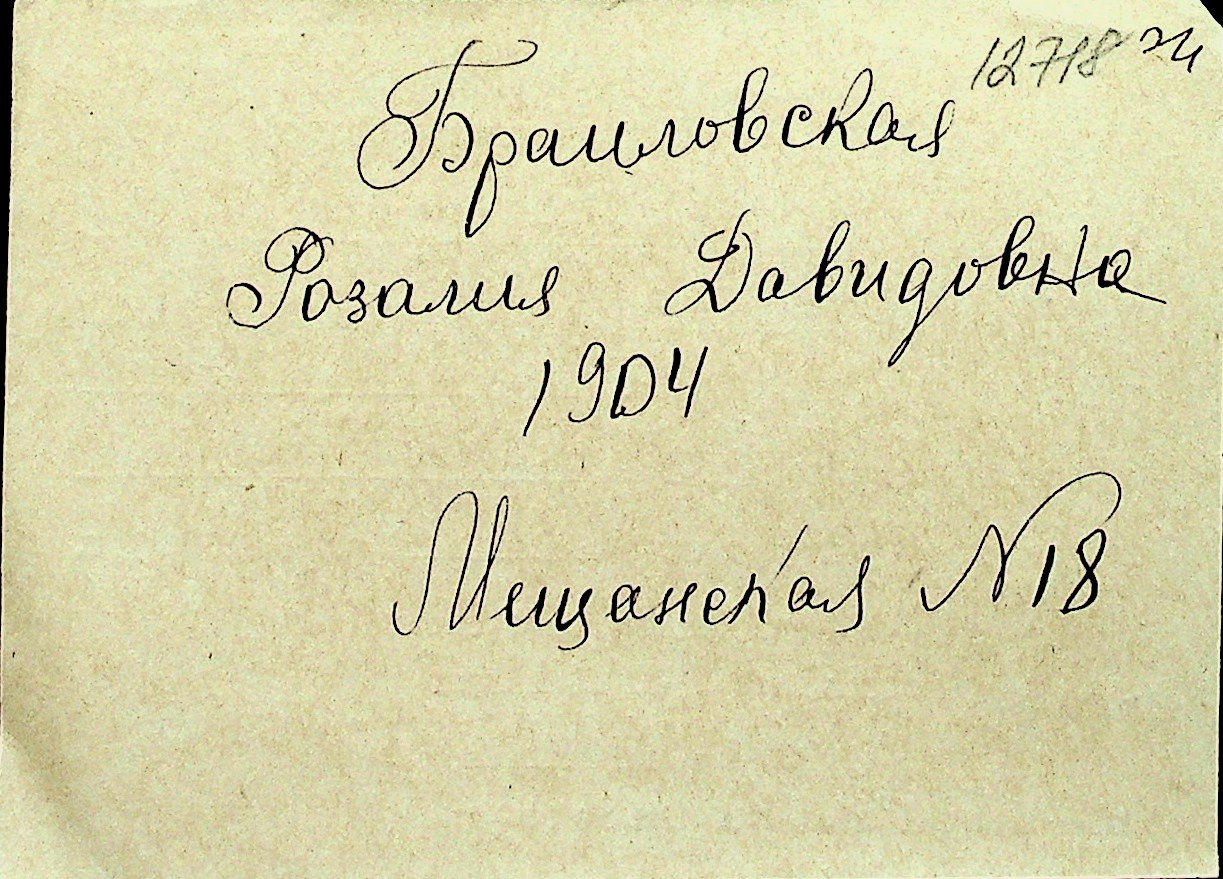 12718
Браиловская
Розалия Давидовна
1904
Мещанская N 18